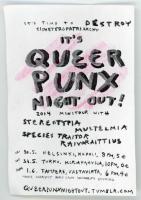 IT'S TIME TO DESTROY
CISHETEROPATRIARCHY
IT'S
QUEER
PUNX
NIGHT OUT!
2014 MINITOUR WITH
STEREOTYPIA
MULTELMIA
SPECIES TRAITOR
RAIVORAITTIUS
30.5. HELSINKI,
31.5. TURKU, KIRJAKAHVILA,
1.6. TAMPERE, VASTAVIRTA,
QUEERPUNXNIGHTOUT.TUMBLR.COM